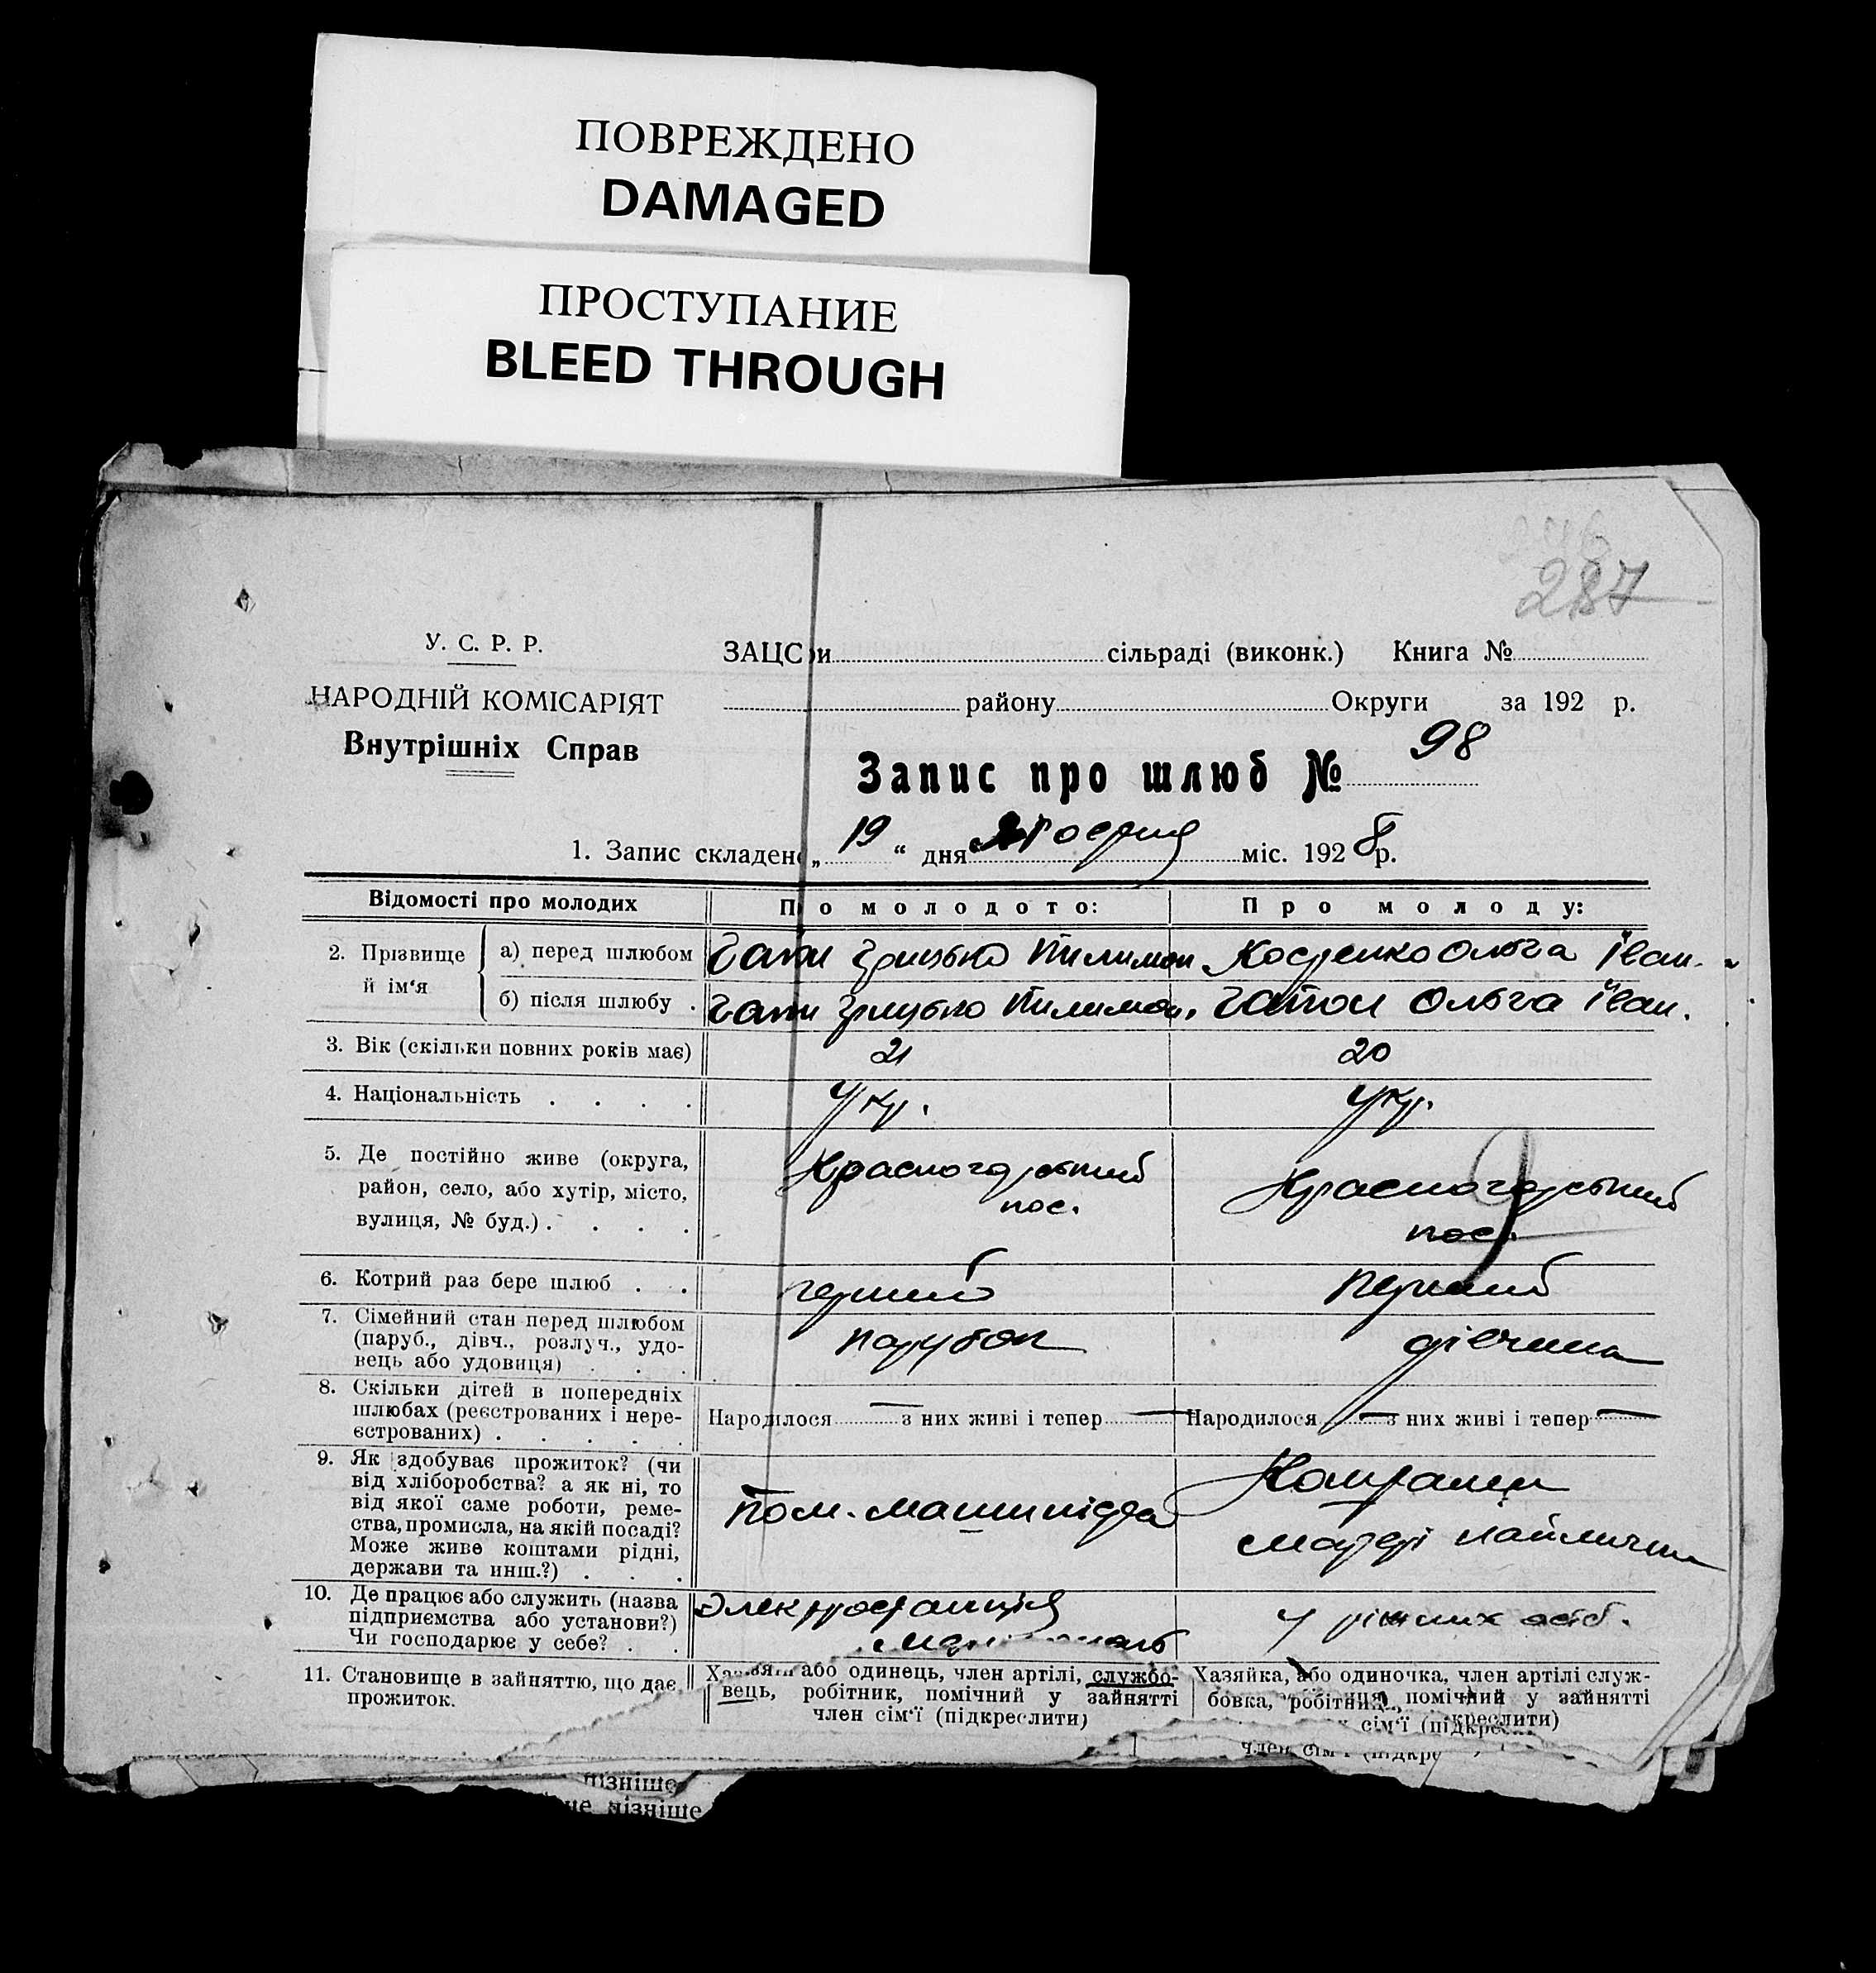 ПОВРЕЖДЕНО
DAMAGED
ПРОСТУПАНИЕ
BLEED THROUGH
287
У. С. Р. Р.
НАРОДНІЙ КОМІСАРІЯТ
Внутрішніх Справ
ЗАЦС ри сільраді (виконк.) Книга №
району Округи за 192 р.
Запис про шлюб № 98
1. Запис складено „ 19 “ дня міс. 192 8 р.
Відомості про молодих
Про молодого:
Про молоду:
2. Прізвище й ім‘я
а) перед шлюбом
Грицько Пилимон
Костенко Ольга Іван.
б) після шлюбу .
Грицько Пилимон.
Ольга Іван.
3. Вік (скільки повних років має)
21
20
4. Національність . . . .
Укр.
Укр.
5. Де постійно живе (округа,
район, село, або хутір, місто,
вулиця, № буд.) . . . .
Красногорський
пос.
Красногорський
пос.
6. Котрий раз бере шлюб . .
перший
перший
7. Сімейний стан перед шлюбом
(паруб., дівч., розлуч., удо-
вець або удовиця) . . .
парубок
дівчина
8. Скільки дітей в попередніх
шлюбах (реєстрованих і нере-
єстрованих) . . . . .
Народилося — з них живі і тепер —
Народилося — з них живі і тепер —
9. Як здобуває прожиток? (чи
від хліборобства? а як ні, то
від якої саме роботи, реме-
ства, промисла, на якій посаді?
Може живе коштами рідні,
держави та инш.?) . . .
Пом. машиніста
Коштами
матері наймички
10. Де працює або служить (назва
підприємства або установи?)
Чи господарює у себе? . .
Электростанція
У ріжних осіб.
11. Становище в зайняттю, що дає
прожиток.
Хазяїн або одинець, член артілі, службо-
вець, робітник, помічний у зайнятті
член сім‘ї (підкреслити)
Хазяйка, або одиночка, член артілі служ-
бовка, робітниця, помічний у зайнятті
сім‘ї (підкреслити)
член сім‘ї
пізніше
не пізніше